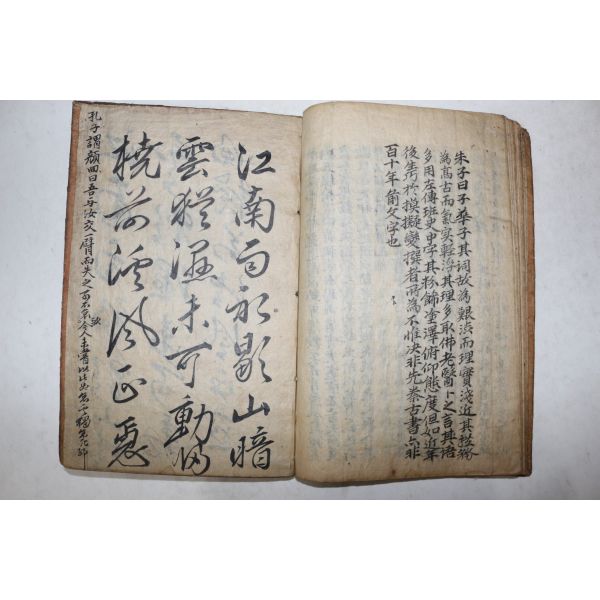 朱子曰子華子其詞故為艱澁而理實淺近其務
為高古而氣實輕浮其理多取佛老醫卜之言其語
多用左傳班史中字其粉飾塗澤俯仰態度但如近年
後生巧於摸擬變撰者所為不惟決非先秦古書亦非
百十年前文字也
江南雨初歇山暗
雲猶濕未可動歸
橈前溪風正急
孔子謂顔回曰吾与汝交一臂而失之